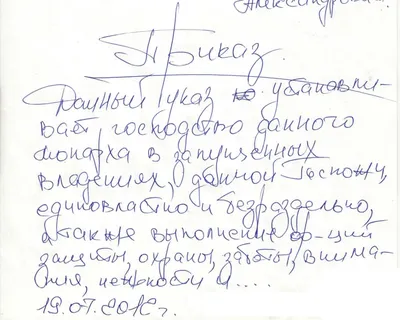 Александров...
Приказ.
Данный указ устанавли-
вает господство данного
монарха в запущенных
владениях, данной Госпожи,
единовластно и безраздельно,
а также выполнение ф-ций
защиты, охраны, заботы, внима-
ния, нежности и....
19.07.2012г.